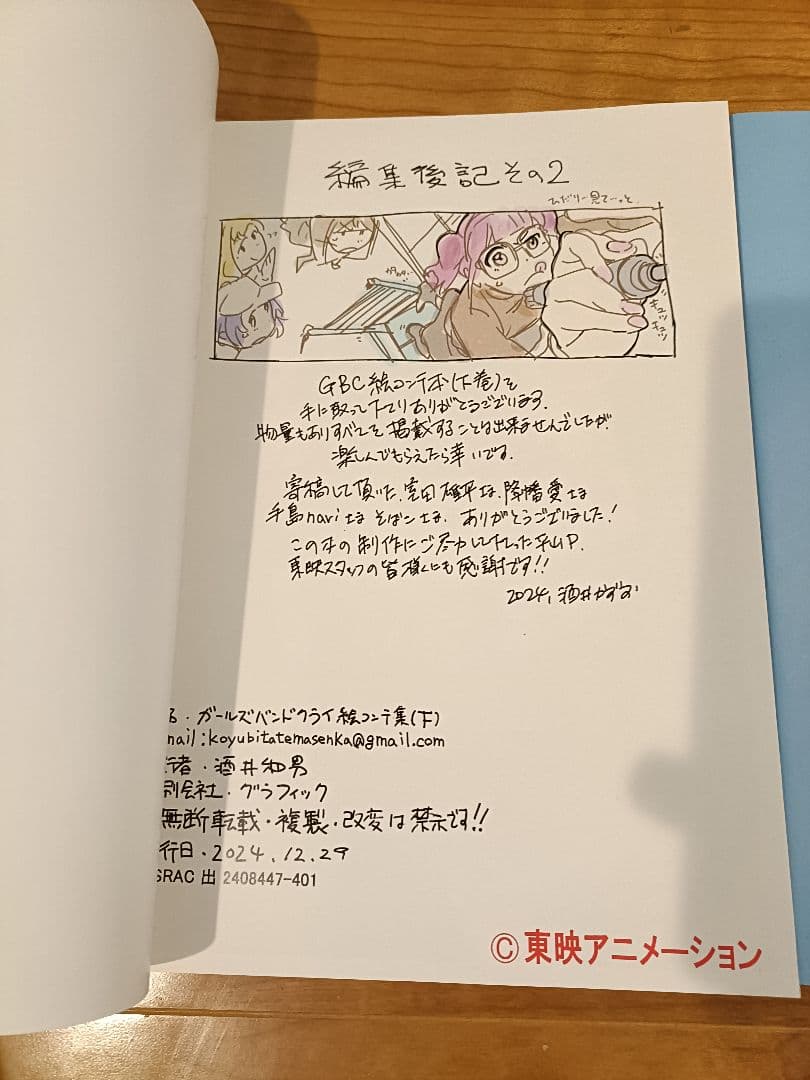 編集後記その2
ひだりー見てーっと
キュッ
キュッ
GBC絵コンテ本(下巻)を
手に取って下さりありがとうございます.
物量もありすべてを掲載することは出来ませんでしたが
楽しんでもらえたら幸いです.
寄稿して頂いた.室田雄平さま.降幡愛さま
手島nariさま そばンさま. ありがとうございました!
この本の制作にご尽力して下さった平山P.
東映スタッフの皆様にも感謝です!!
2024, 酒井かずお
る・ガールズバンドクライ絵コンテ集(下)
mail:koyubitatemasenka@gmail.com
行者・酒井和男
刷会社・グラフィック
無断転載・複製・改変は禁示です!!
行日・2024.12.29
SRAC 出 2408447-401
©東映アニメーション